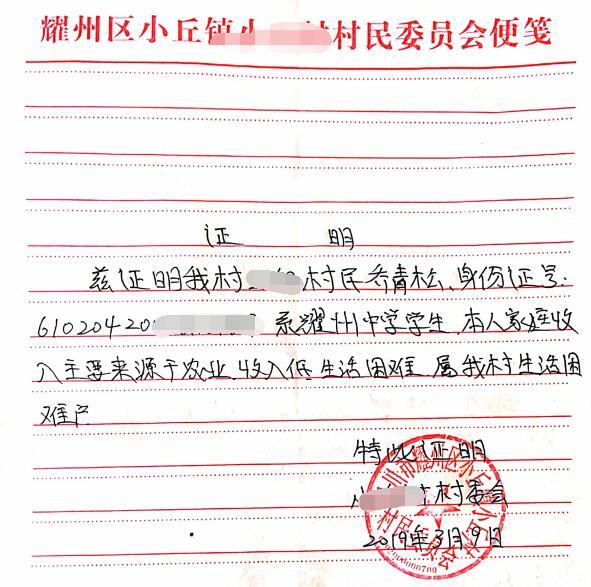 耀州区小丘镇小村村民委员会便笺
证 明
兹证明我村村民乔青松、身份证号:
61020420 系耀州中学学生.本人家庭收
入主要来源于农业.收入低.生活困难.属我村生活困
难户
特此证明
村委会
2019年3月9日